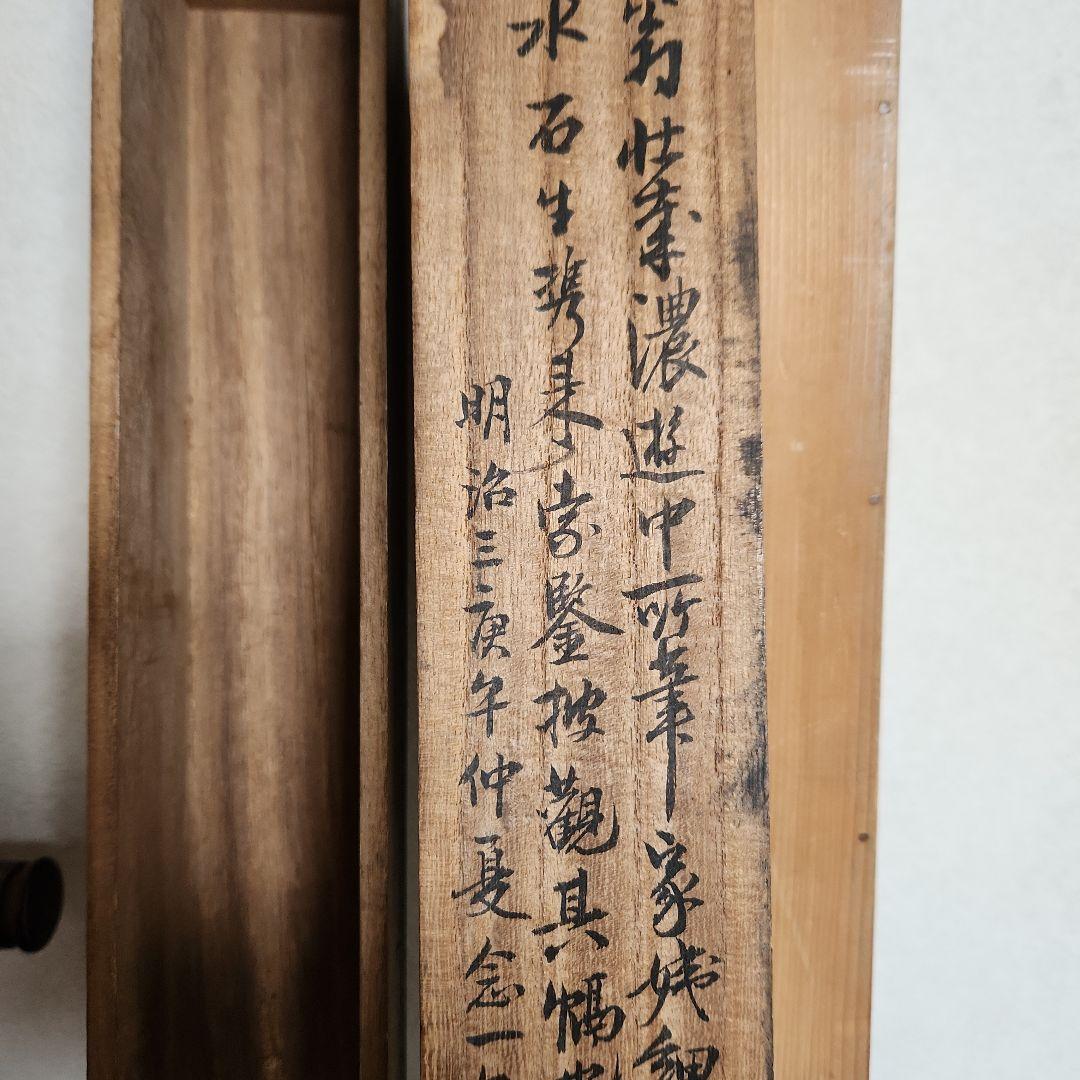 翁壮歳濃遊中所筆家姨細
水石生携来索鑒披觀其幅
明治三庚午仲夏念一